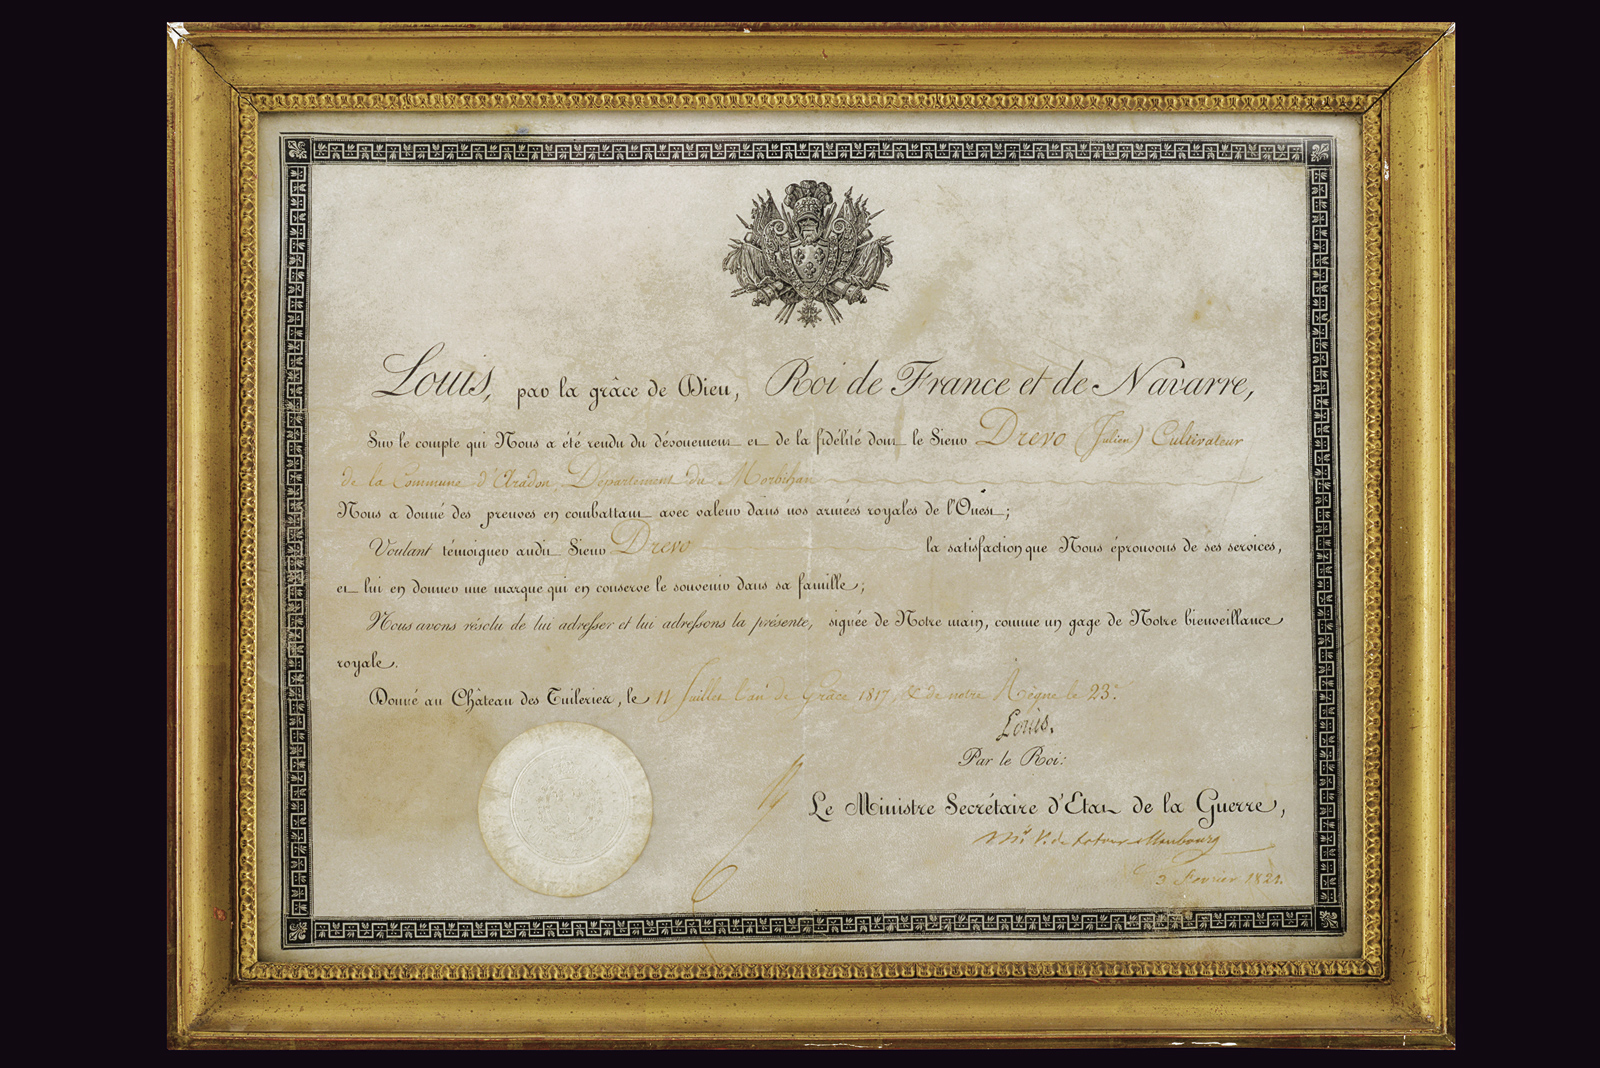 Louis, par la grâce de Dieu, Roi de France et de Navarre,
Sur le compte qui Nous a été rendu du dévouement et de la fidélité dont le Sieur Drevo (Julien) Cultivateur
de la Commune d'Aradon, Département du Morbihan
Nous a donné des preuves en combattant avec valeur dans nos armées royales de l'Ouest;
Voulant témoigner audit Sieur Drevo la satisfaction que Nous éprouvons de ses services,
et lui en donner une marque qui en conserve le souvenir dans sa famille;
Nous avons résolu de lui adresser et lui adressons la présente, signée de Notre main, comme un gage de Notre bienveillance
royale.
Donné au Château des Tuileries, le 11 Juillet l'an de Grâce 1817, & de notre Règne le 23.e
Louis.
Par le Roi:
Le Ministre Secrétaire d'Etat de la Guerre,
M.is V. de Latour Maubourg
3 Fevrier 1821.